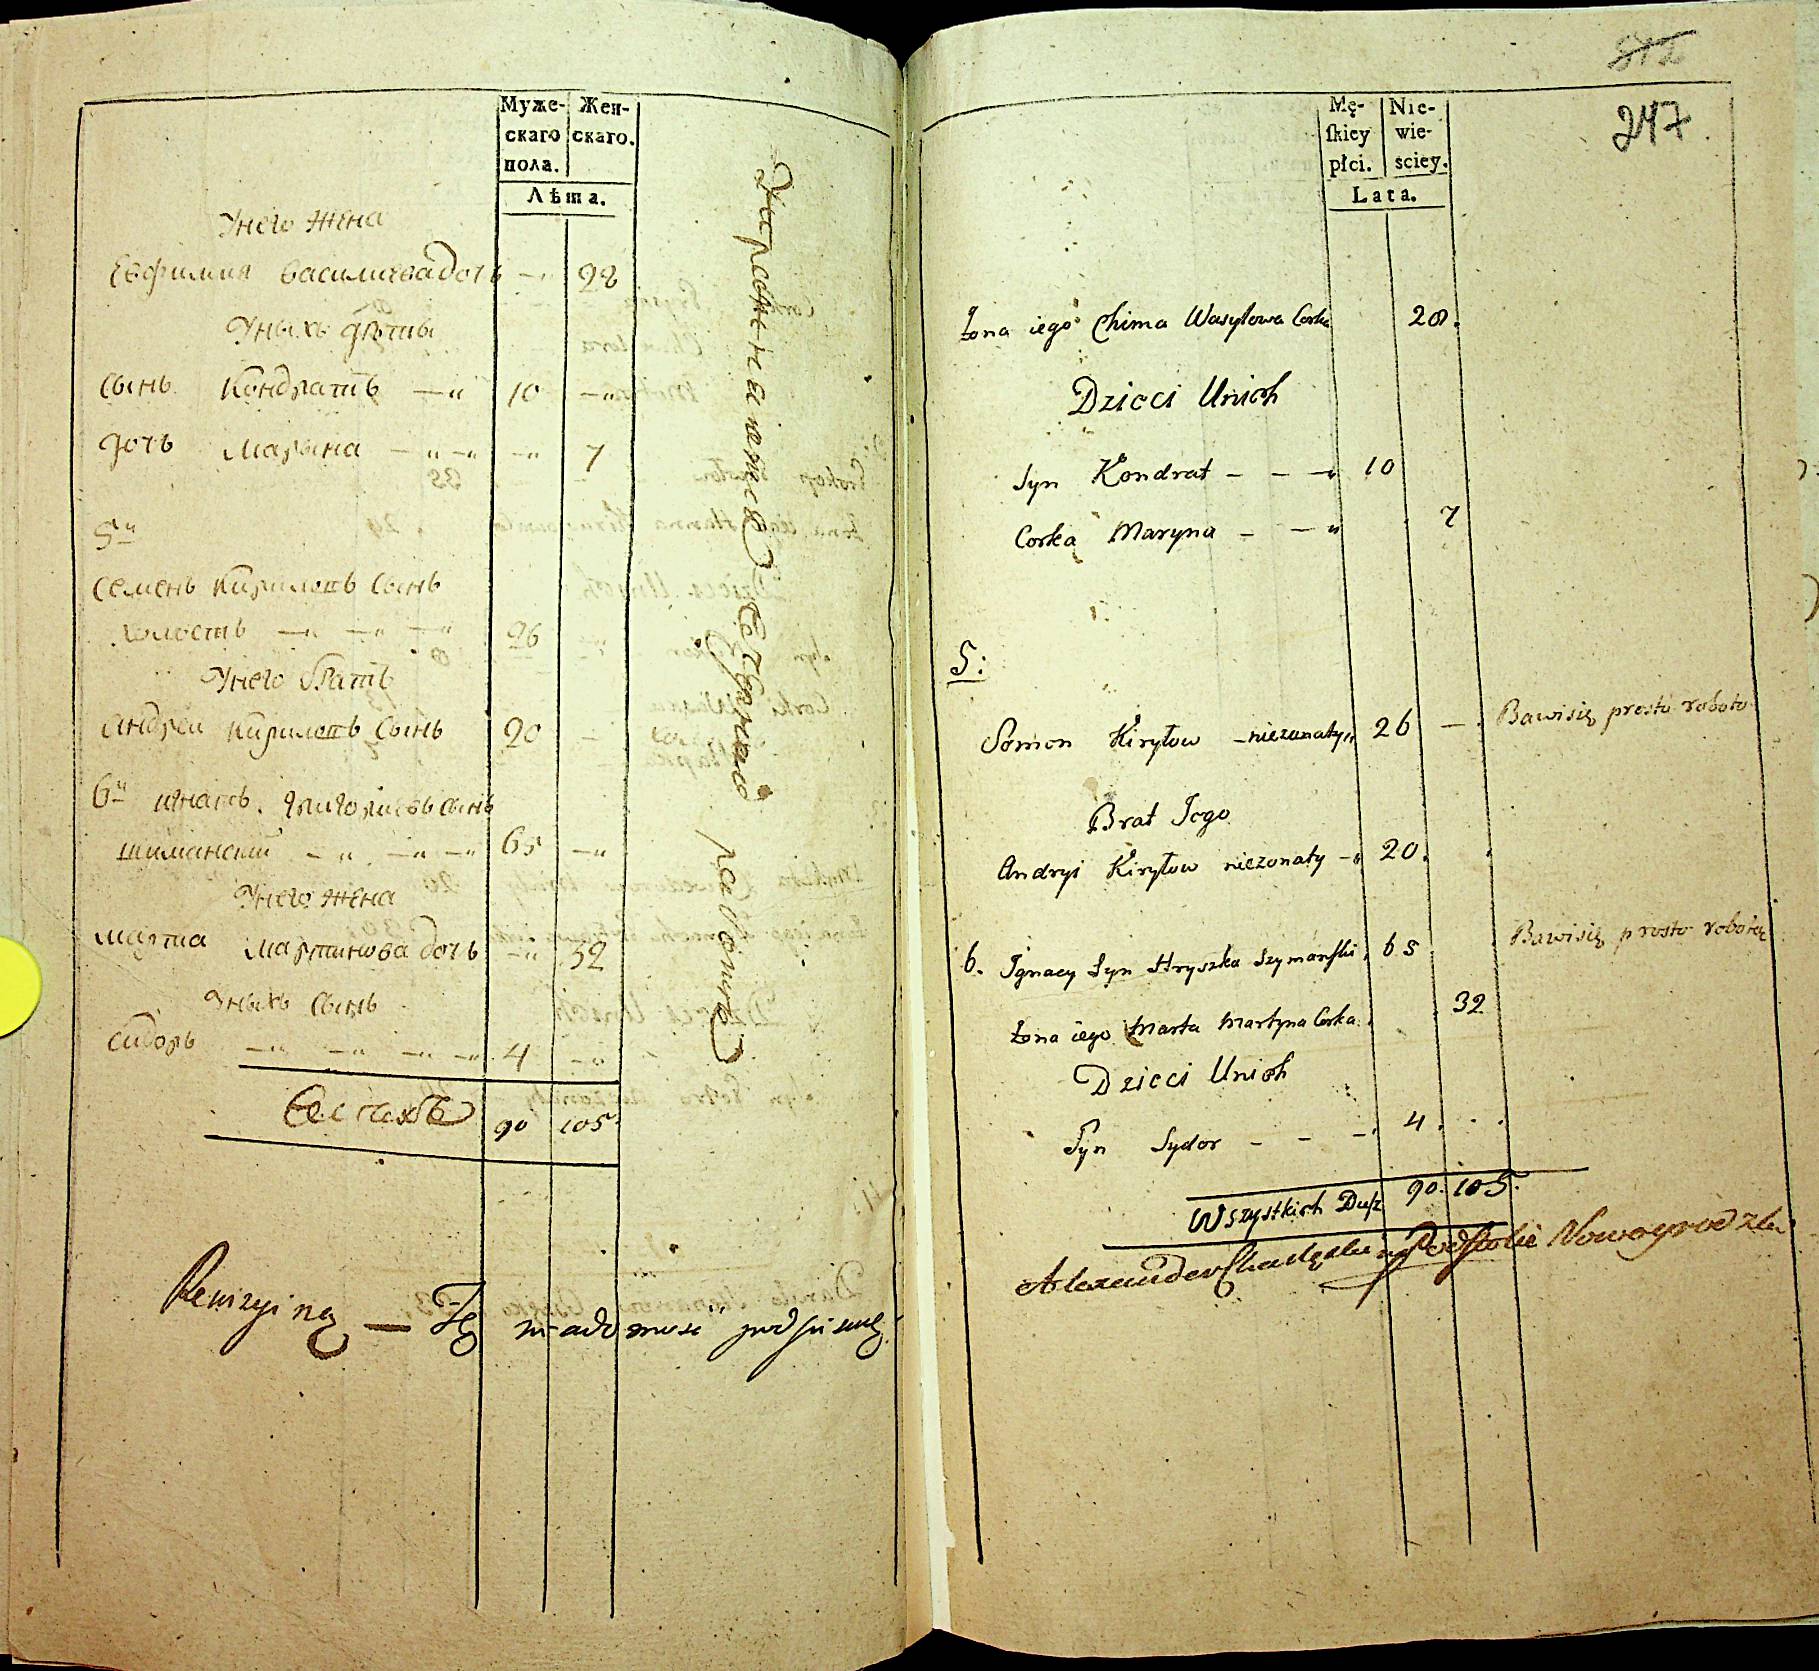 Муже-
скаго
пола.
Жен-
скаго.
Лѣта.
Унего жена
Евфимия василиева дочь — 28
Уныхъ дѣти
сынъ Кондратъ — 10 —
дочь Марына — — — 7
5й
Семенъ Кирилевъ сынъ
холостъ — — — 26
Унего братъ
Андрей Кирилевъ сынъ 20 —
6й игнатъ григориевъ сынъ
шиманский — — — 65 —
Унего жена
марта мартинова дочь — 32
Уныхъ сынъ
сидоръ — — — — 4 —
Всѣхъ 90 105.
wiadomość podpisuię
Mę-
ſkiey
płci.
Nie-
wie-
sciey.
Lata.
247
Żona iego Chima Wasylowa Corka 28.
Dzieci Unich
Syn Kondrat — — — 10
Corka Maryna — — 7
5:
Semen Kiryłow — niezonaty 26 — Bawisię prosto roboto
Brat Iego
Andryi Kiryłow niezonaty — 20.
6. Ignacy Syn Hryszka Szymanſki 65 Bawisię prosto robotą
Żona iego Marta Martyna Corka. 32
Dzieci Unich
Syn Sydor — — — 4.
Wszystkich Dusz 90. 105.
Alexander Podstolic Nowogrodzki